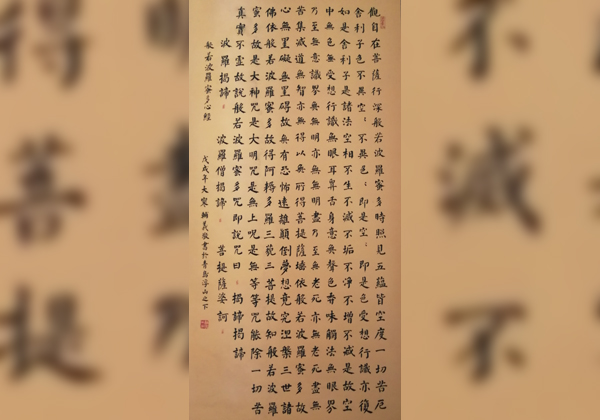 觀自在菩薩行深般若波羅蜜多時照見五蘊皆空度一切苦厄
舍利子色不異空：不異色：即是空：即是色受想行識亦復
如是舍利子是諸法空相不生不滅不垢不淨不增不减是故空
中無色無受想行識無眼耳鼻舌身意無聲色香味觸法無眼界
乃至無意識界無無明亦無無明盡乃至無老死亦無老死盡無
苦集滅道無智亦無得以無所得菩提薩埵依般若波羅蜜多故
心無罣礙無罣礙故無有恐怖遠離顛倒夢想竟究涅槃三世諸
佛依般若波羅蜜多故得阿耨多羅三藐三菩提故知般若波羅
蜜多故是大神咒是大明咒是無上咒是無等等咒能除一切苦
真實不虛故說般若波羅蜜多咒即說咒曰 揭諦揭諦
波羅揭諦 波羅僧揭諦 菩提薩婆訶
般若波羅蜜多心經 戊戌年大寒 義敬書於青島浮山之下